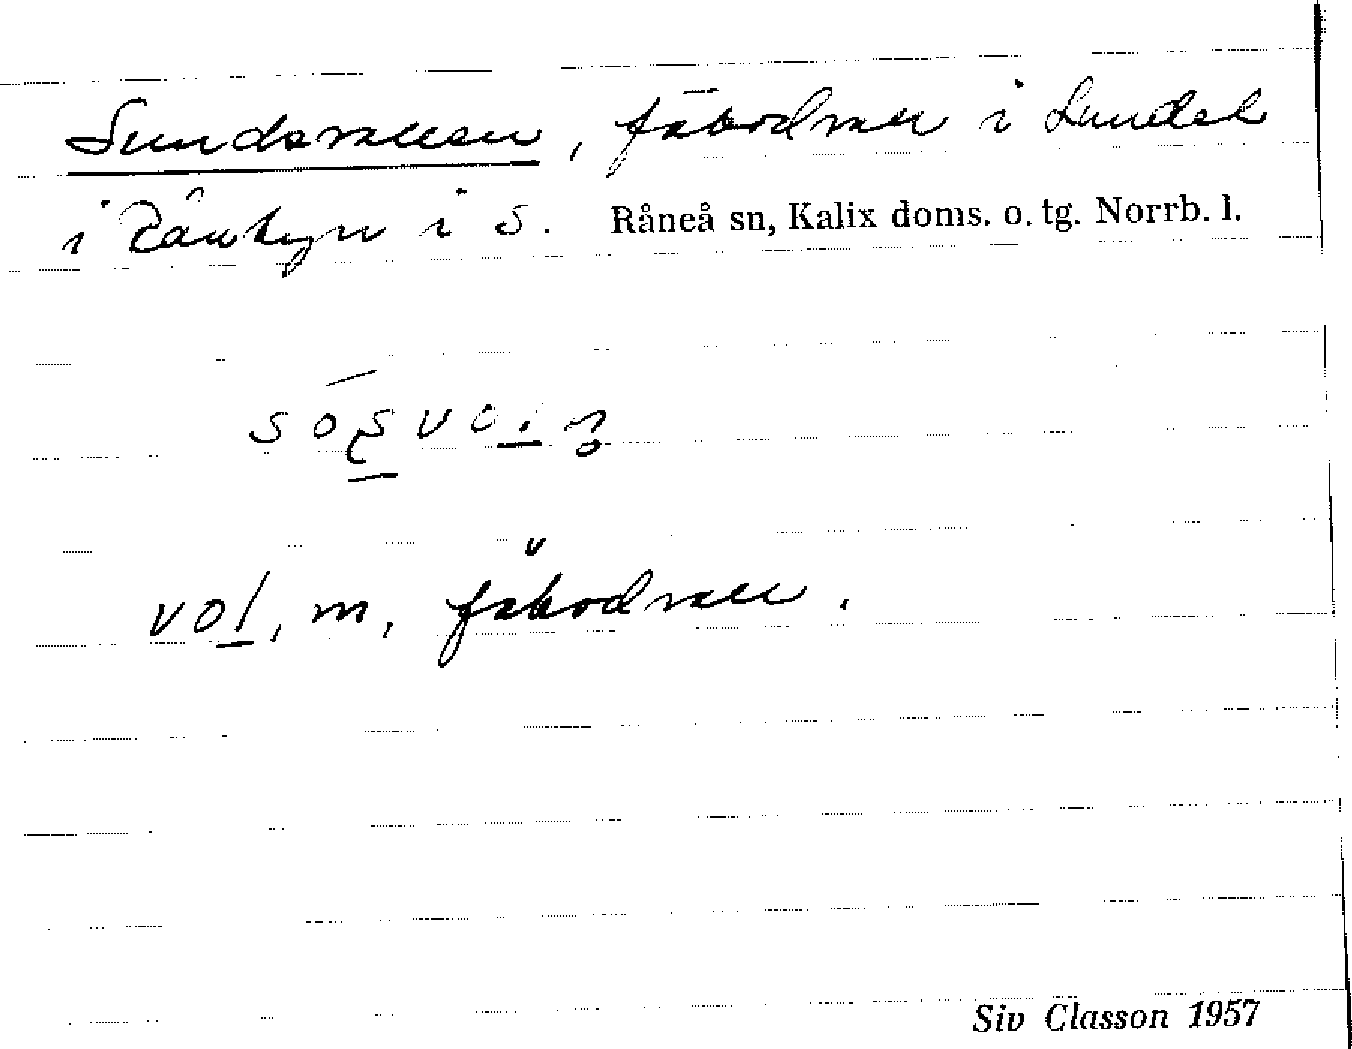 Sundsvallen, fäbodvall i Sundet
i Rånbyn i S. Råneå sn, Kalix doms. o. tg. Norrb. l.
vol, m, fäbodvall.
Siv Classon 1957